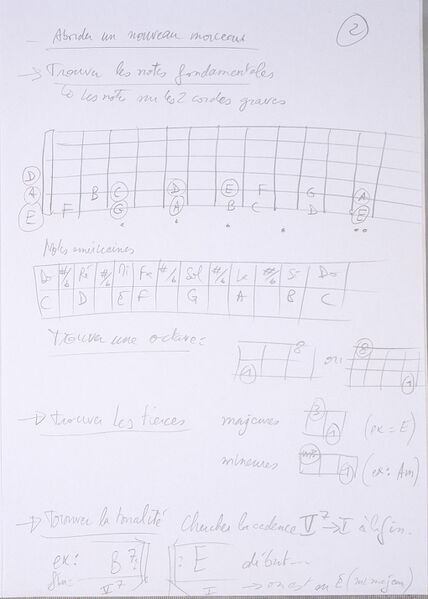 - Aborder un nouveau morceau
2
→ Trouver les notes fondamentales
↳ les notes sur les 2 cordes graves
D
A B C D E F G A
E F G A B C D E
Notes américaines
Do #/b Ré #/b Mi Fa #/b Sol #/b La #/b Si Do
C D E F G A B C
Trouver une octave :
1 8 ou 8 1
→ Trouver les tierces majeures 3 1 (ex = E)
mineures 1 (ex: Am)
→ Trouver la tonalité Chercher la cadence V7 → I à la fin.
ex: B7 : E début...
V7 I → on est en E (mi majeur)